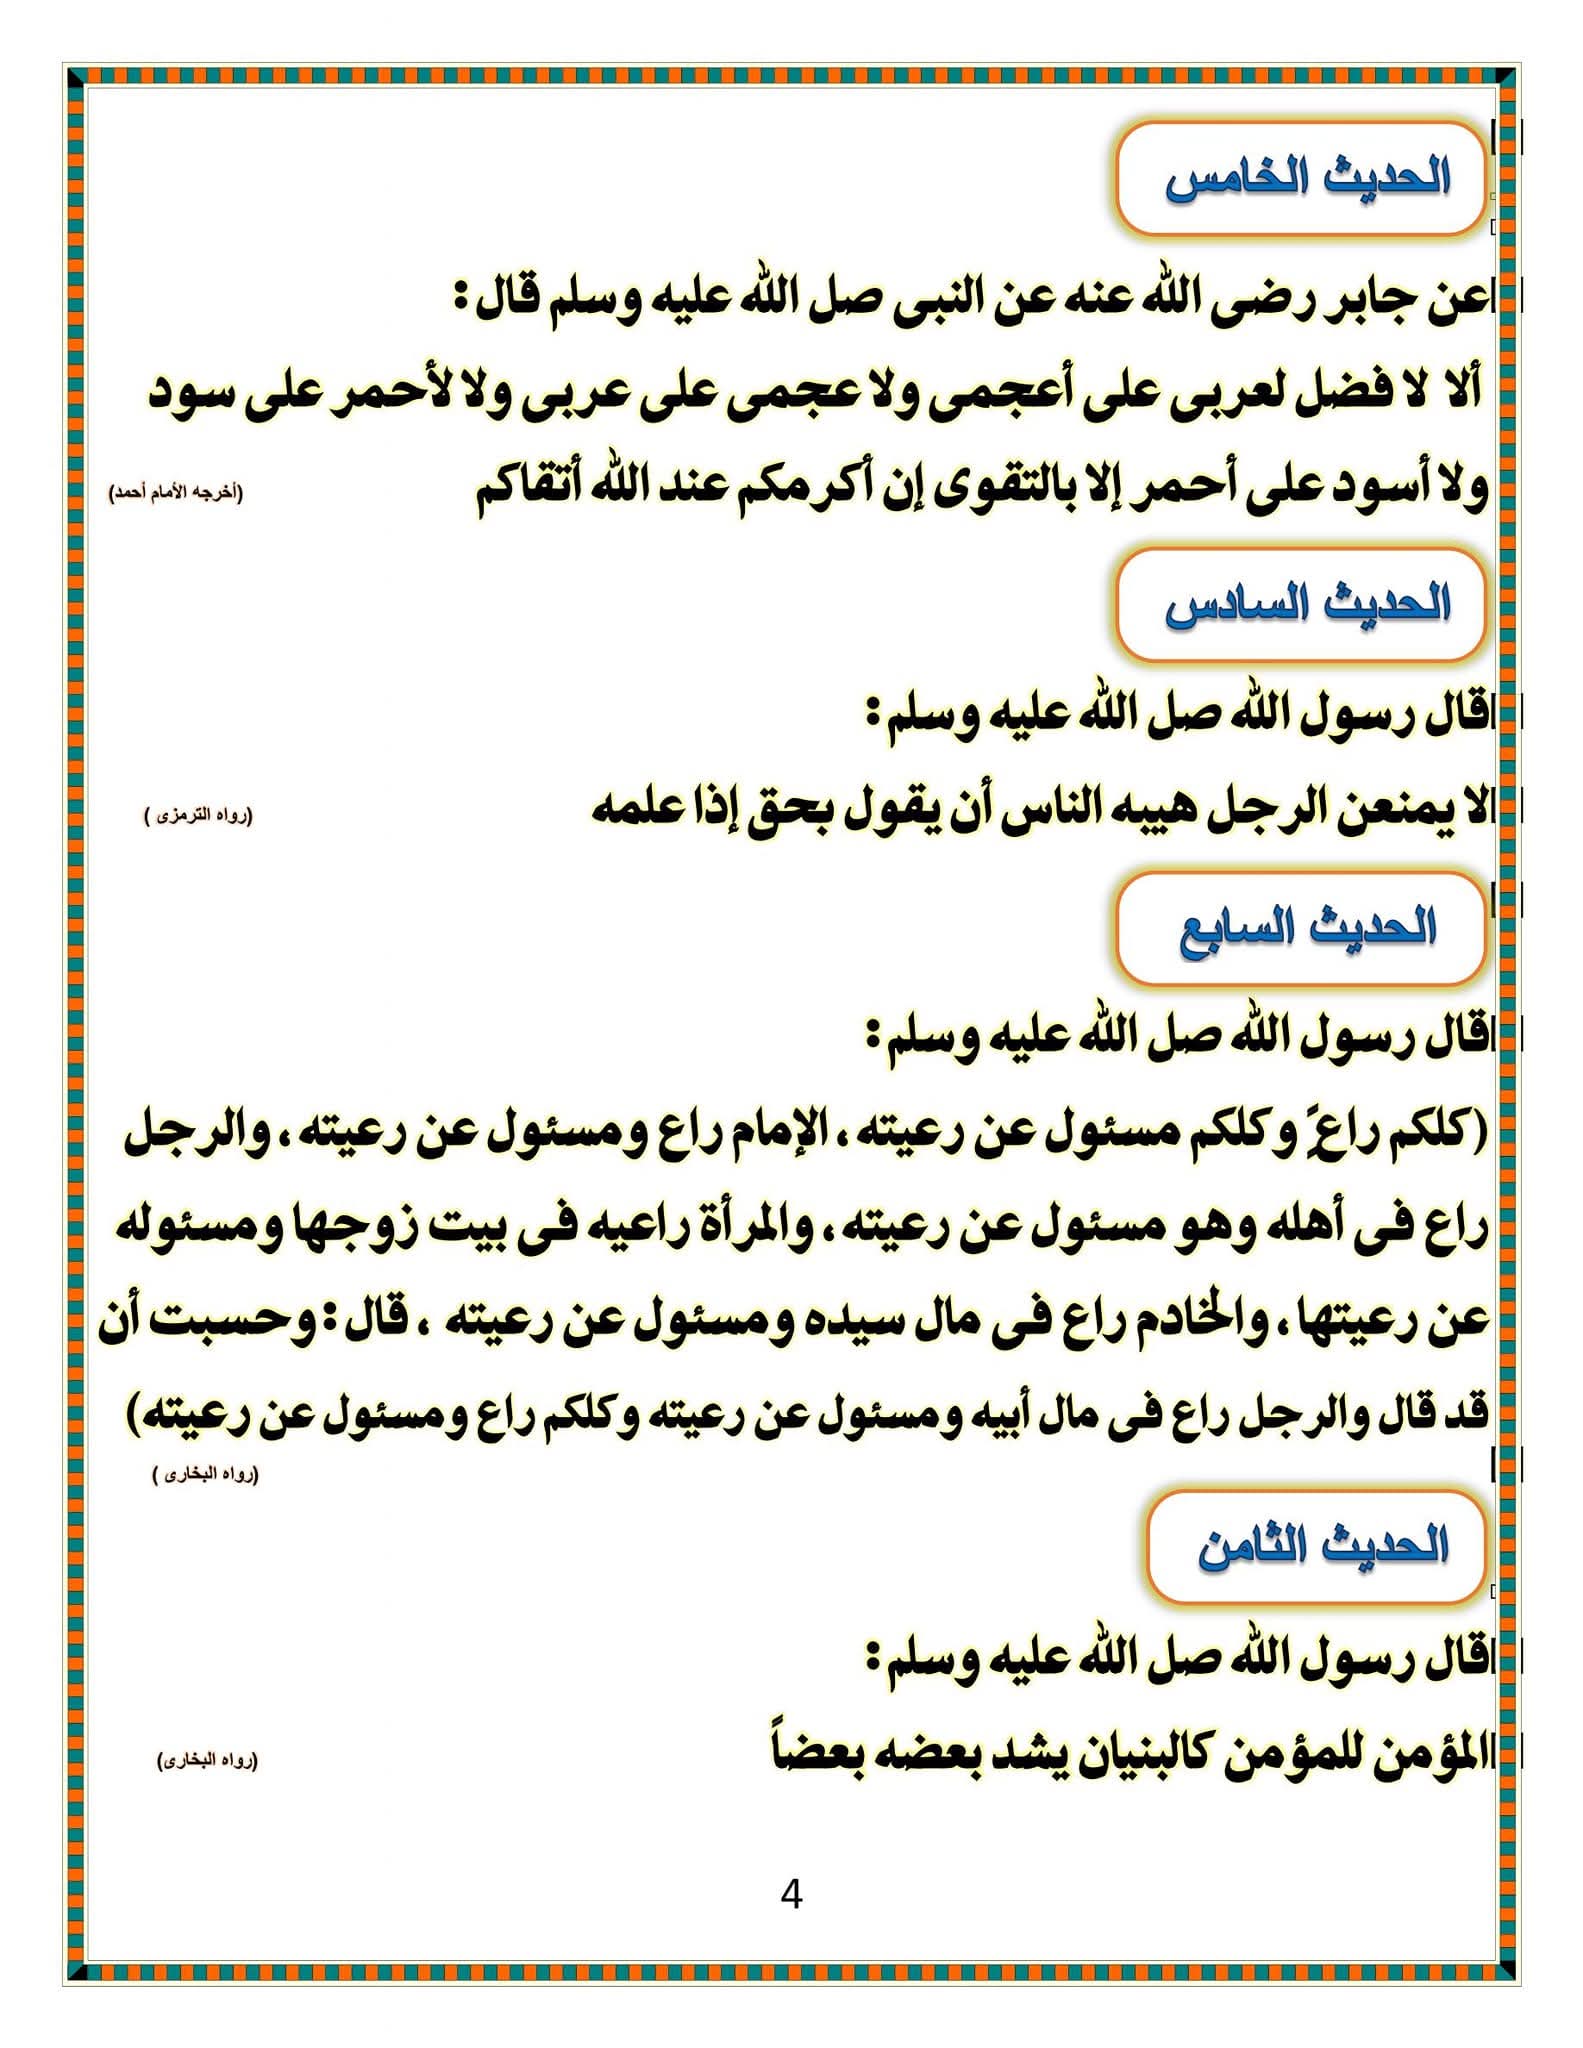 الحديث الخامس
عن جابر رضى الله عنه عن النبى صل الله عليه وسلم قال:
ألا لا فضل لعربى على أعجمى ولا عجمى على عربى ولا لأحمر على سود
ولا أسود على أحمر إلا بالتقوى إن أكرمكم عند الله أتقاكم (أخرجه الأمام أحمد)
الحديث السادس
قال رسول الله صل الله عليه وسلم:
لا يمنعن الرجل هيبه الناس أن يقول بحق إذا علمه (رواه الترمزى )
الحديث السابع
قال رسول الله صل الله عليه وسلم:
(كلكم راعٍ وكلكم مسئول عن رعيته ، الإمام راع ومسئول عن رعيته ، والرجل
راع فى أهله وهو مسئول عن رعيته ، والمرأة راعيه فى بيت زوجها ومسئوله
عن رعيتها ، والخادم راع فى مال سيده ومسئول عن رعيته ، قال: وحسبت أن
قد قال والرجل راع فى مال أبيه ومسئول عن رعيته وكلكم راع ومسئول عن رعيته)
(رواه البخارى )
الحديث الثامن
قال رسول الله صل الله عليه وسلم:
المؤمن للمؤمن كالبنيان يشد بعضه بعضاً (رواه البخارى)
4